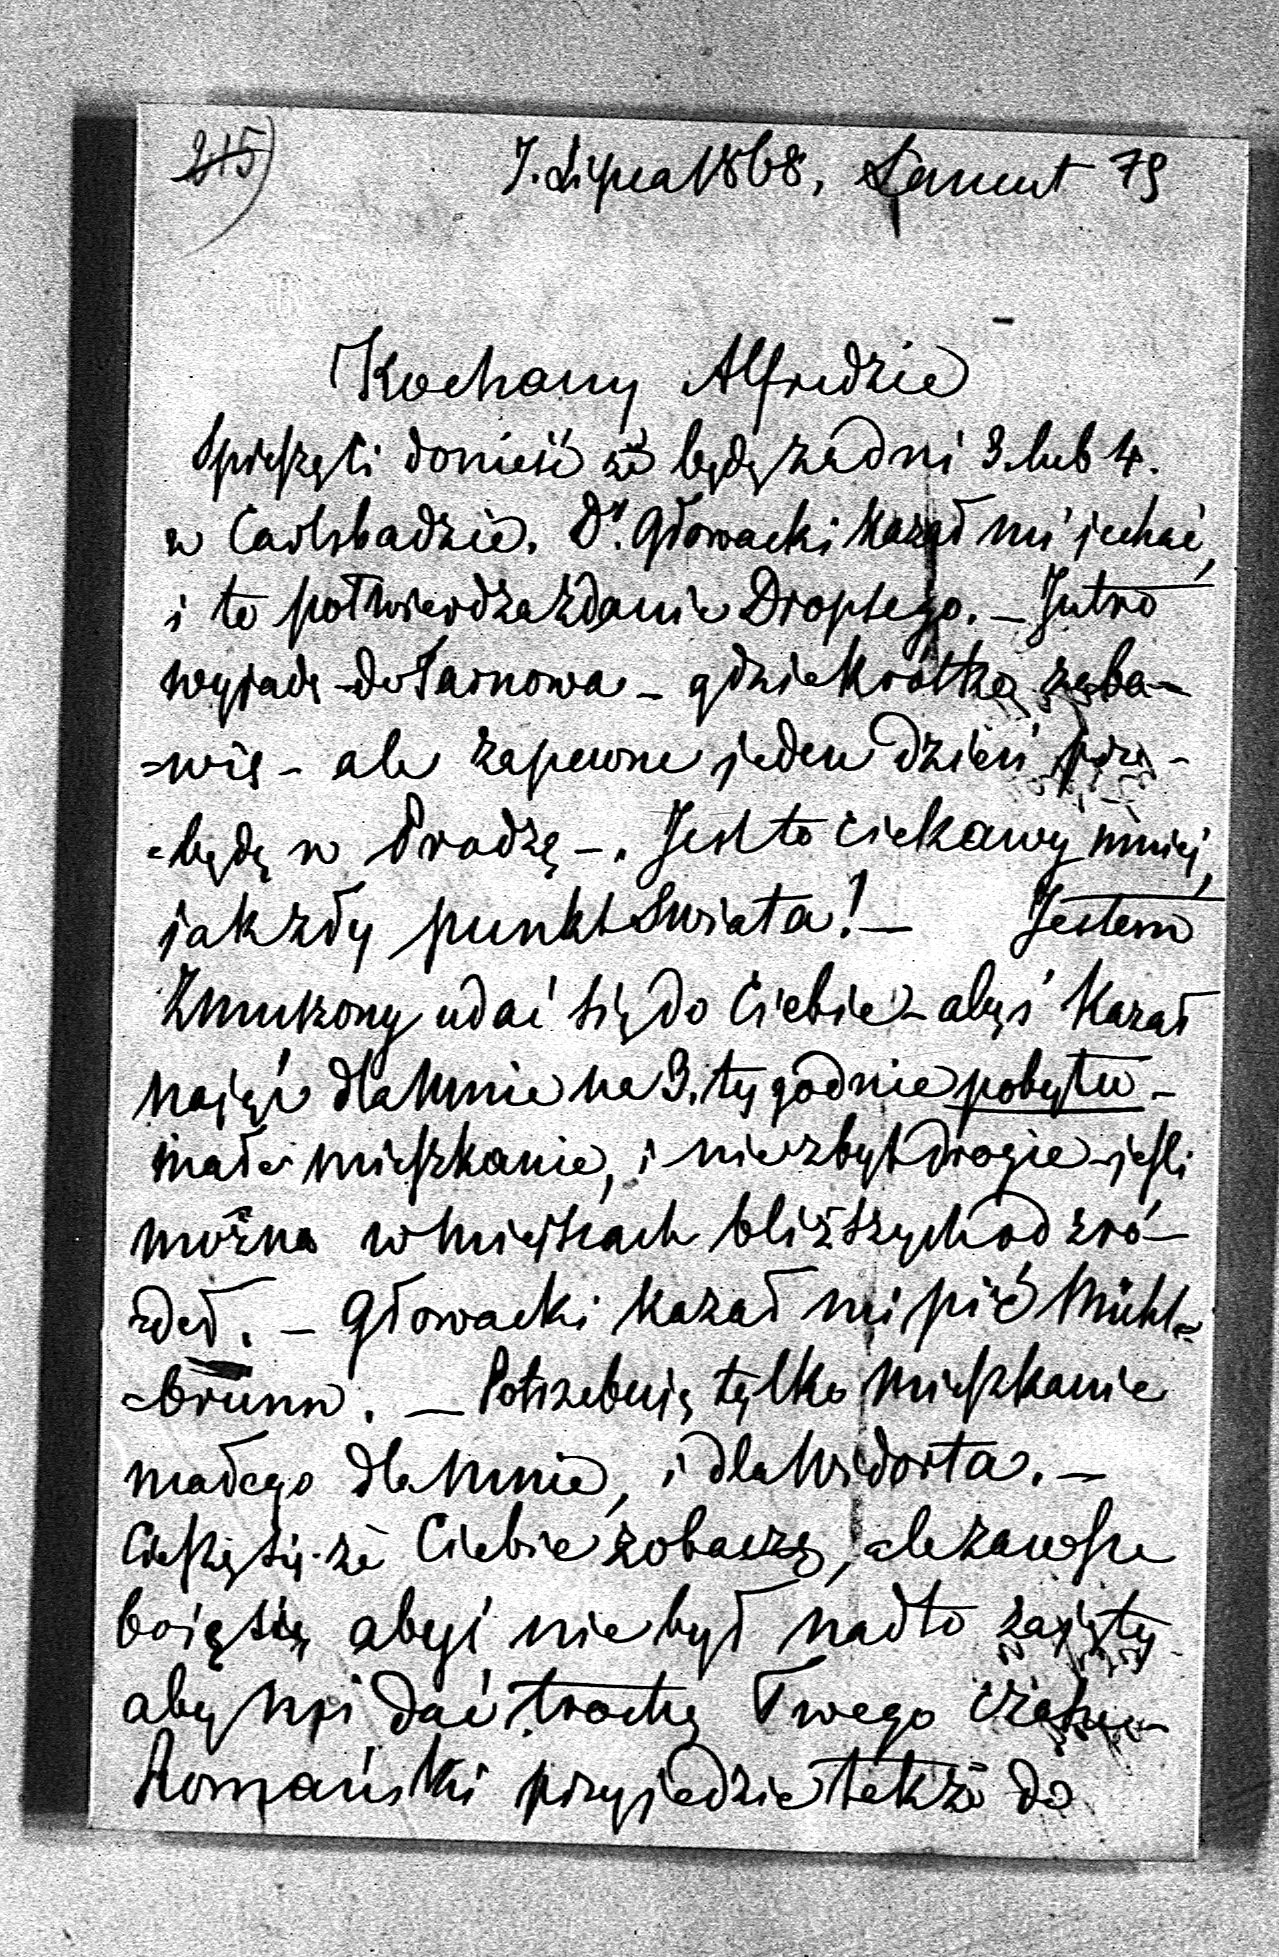 215)
7. Lipca 1868, Łancut 79
Kochany Alfredzie
Spieszę Ci donieść że będę za dni 3. lub 4.
w Carlsbadzie. Dr. Głowacki kazał mi jechać,
i to potwierdza zdanie Dropsego. – Jutro
wyjadę – do Tarnowa – gdzie krótko zaba-
=wię – ale zapewne jeden dzień prze-
=będę w Pradze –. Jest to ciekawy mniej,
jak zły punkt Swiata! – Jestem
Zmuszony udać się do Ciebie – abyś kazał
nająć dla mnie na 3. tygodnie pobytu –
małe mieszkanie, i niezbyt drogie – jeśli
można w miejscach bliższych od zró-
zdeł. – Głowacki kazał mi pić Mühl=
=brunn. – Potrzebuję tylko mieszkanie
małego dla mnie, i dla
Cieszę się że Ciebie zobaczę, ale zawsze
boię się abyś nie był nadto zajęty
aby mi dać trochę Twego czasu –
Romański przyjedzie także do